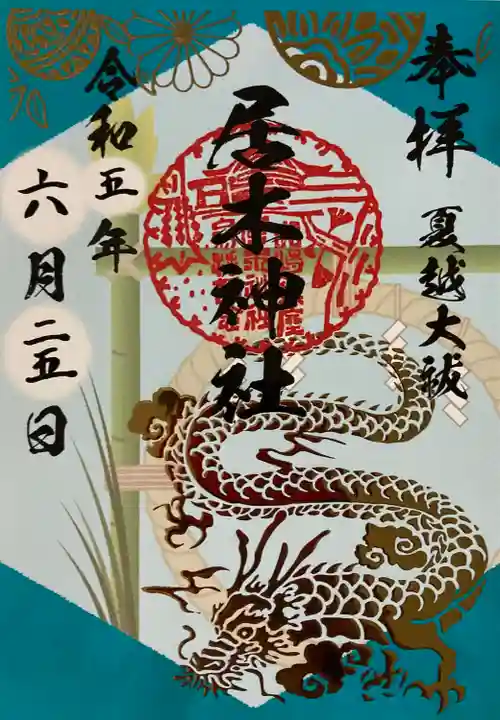 奉拝
夏越大祓
居木神社
令和五年
六月二五日